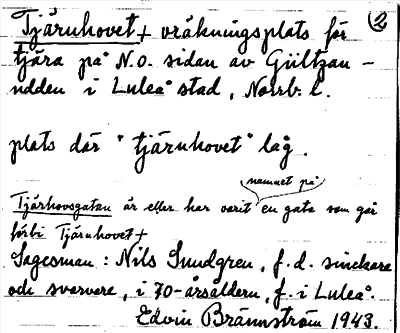 Tjäruhovet + vräkningsplats för (2
tjära på N.O. sidan av Gültzau-
udden i Luleå stad, Norrb. l.
plats där "tjäruhovet" låg.
namnet på
Tjärhovsgatan är eller har varit en gata som går
förbi Tjäruhovet +
Sagesman: Nils Sundgren, f.d. snickare
och svarvare, i 70-årsåldern, f. i Luleå.
Edvin Brännström 1943.